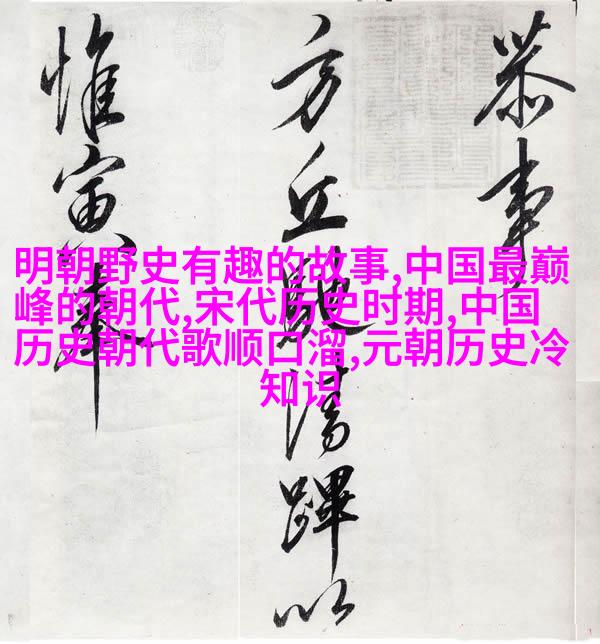 恭事
方丘馳清蹕以
惟寅奉
明朝野史有趣的故事,中国最巅
峰的朝代,宋代历史时期,中国
历史朝代歌顺口溜,元朝历史冷
知识